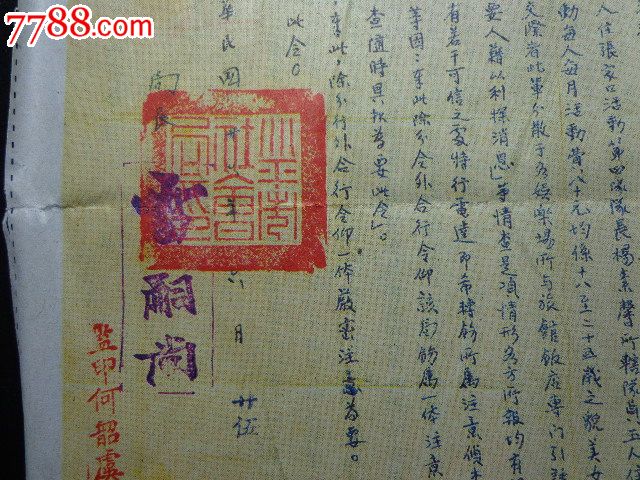 7788.com
中国收藏热线
人住張家口活動第四隊隊長楊素馨所轄隊員五人住
動每人每月活動費八十元均係十八至二十五歲之貌美女
交際者此輩分散于各娛樂場所与旅館飯店專门引誘
要人藉以利探消息」等情查是項情形各方所報均有
有若干可信之處特行電達即希轉飭所属注意偵
等因：奉此除分令外合行令仰該局飭属一体注意
查随時具報為要此令」。
等奉此，除分行外合行令仰一体嚴密注意為要。
此令。
華民國卅六年六月廿伍
局長
嗣尚
北平市社會局印
监印何韶虞